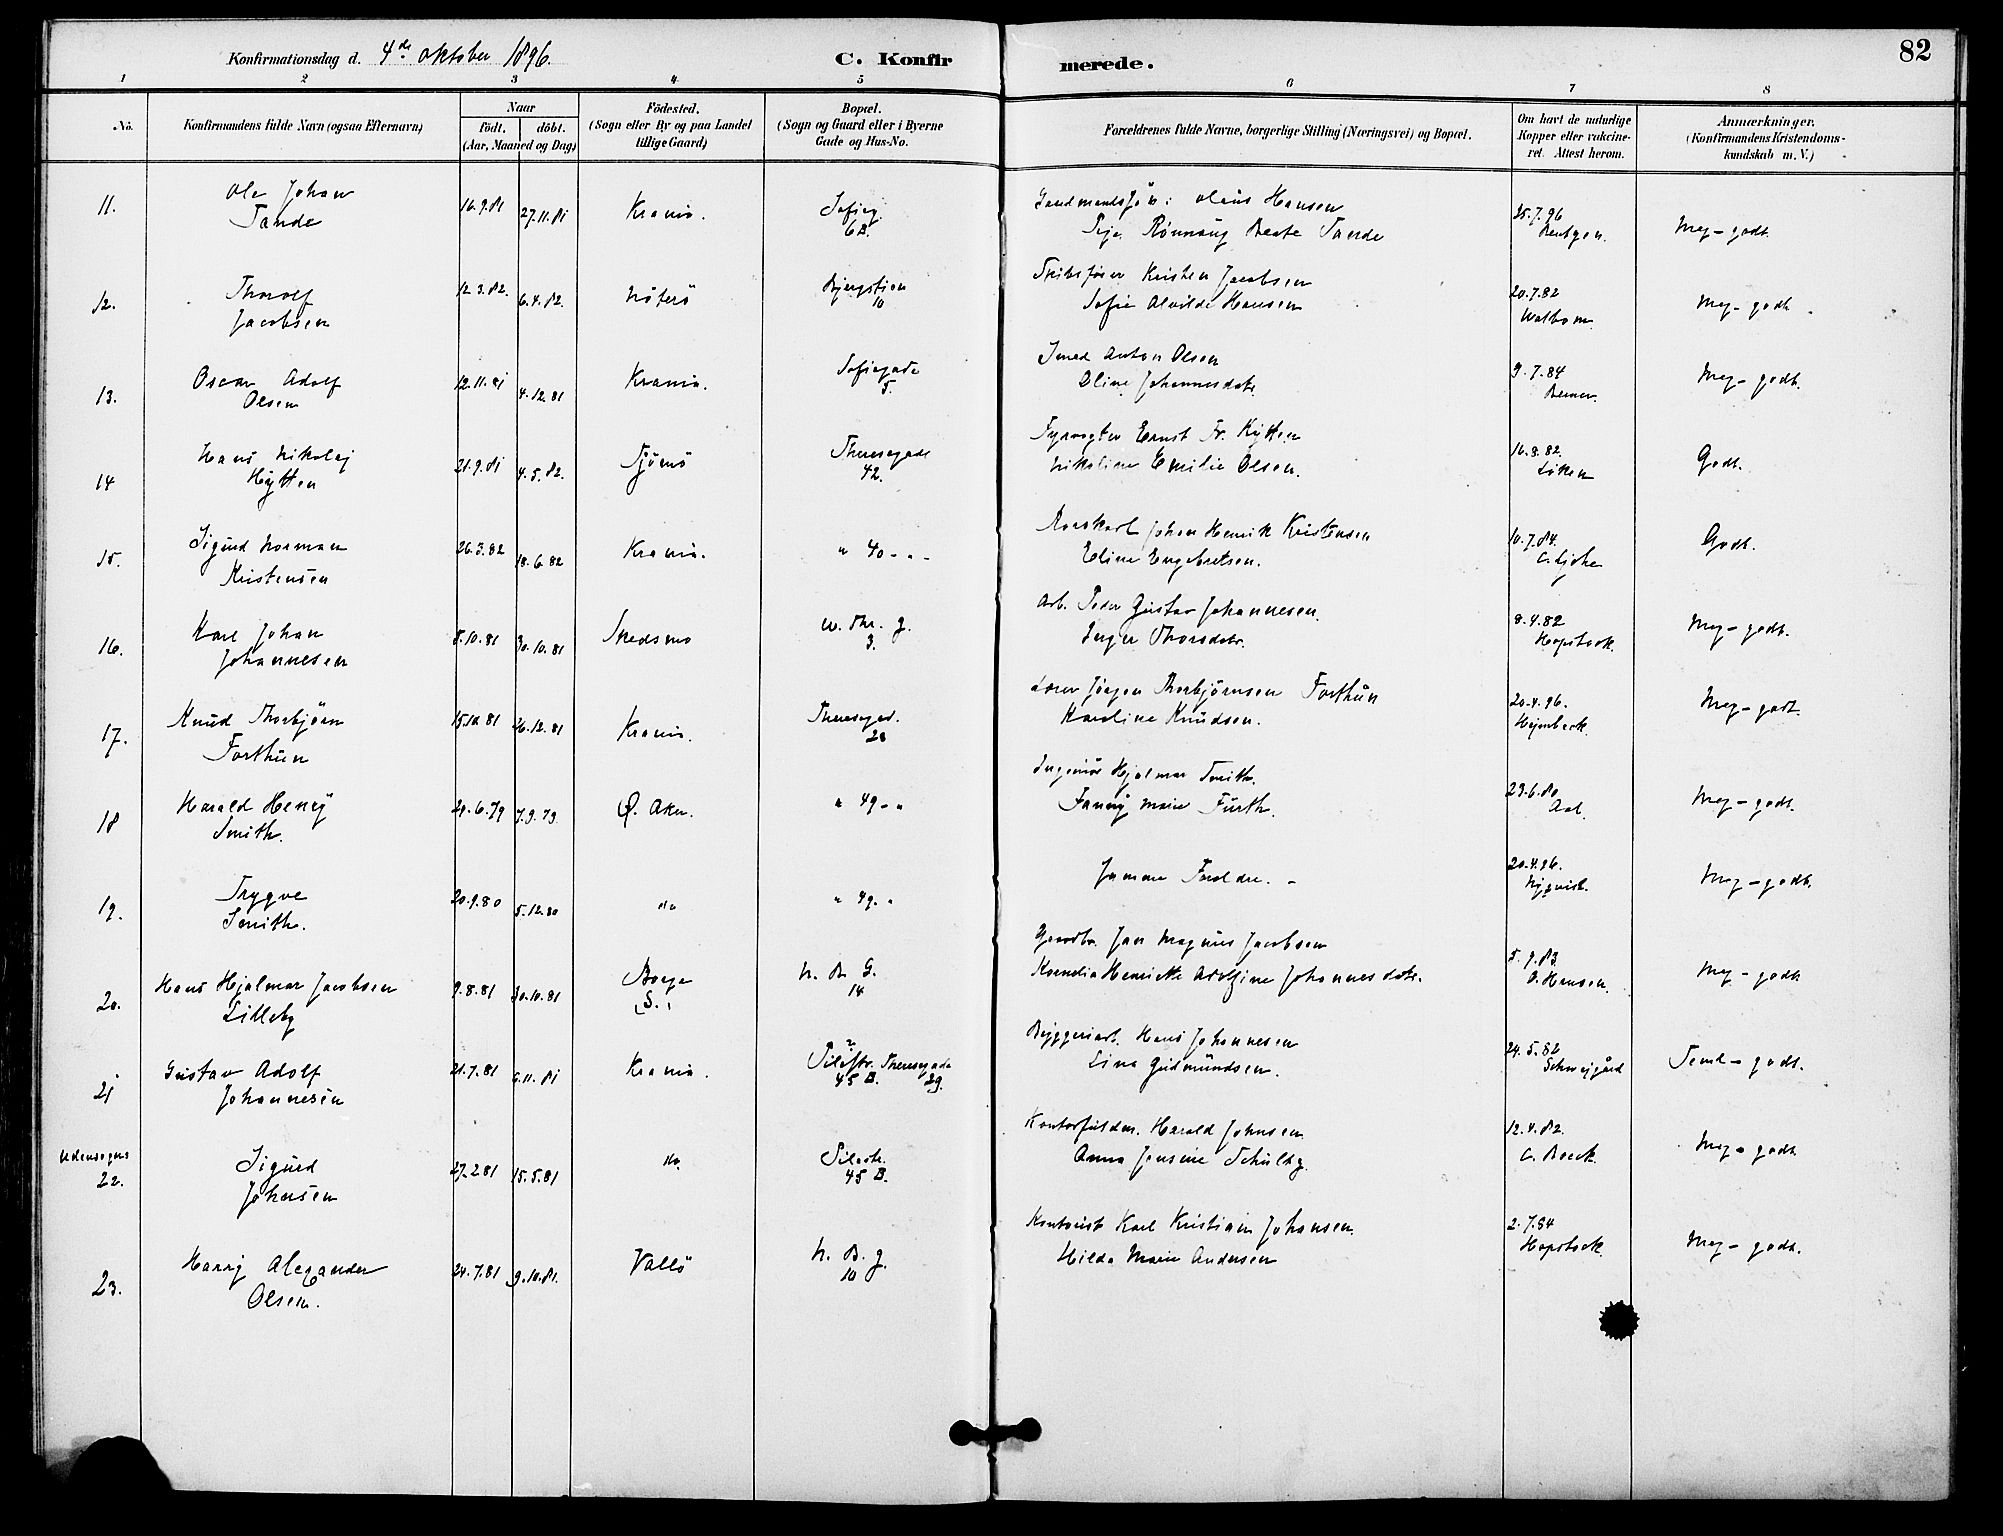 Konfirmationsdag d. 4de oktober 1896.
C. Konfirmerede.
82
1 2 3 4 5 6 7 8
No.
Konfirmandens fulde Navn (ogsaa Efternavn)
Naar
födt. döbt.
(Aar, Maaned og Dag)
Födested.
(Sogn eller By og paa Landet
tillige Gaard)
Bopæl.
(Sogn og Gaard eller i Byerne
Gade og Hus-No.
Forældrenes fulde Navne, borgerlige Stilling (Næringsvei) og Bopæl.
Om havt de naturlige
Kopper eller vakcine-
ret. Attest herom.
Anmærkninger.
(Konfirmandens Kristendoms-
kundskab m. V.)
11. Ole Johan
Tande
16.9.81 27.11.81 Krania. Sofieg.
6B.
Olaus Hansen
Pige Rønnaug Beate Tande
25.7.96
Meg-godt.
12. Thorolf
Jacobsen
12.3.82. 6.4.82. Nöterö
10
Skibsfører Kristen Jacobsen
Sofie Alvilde Hansen
20.7.82
Meg-godt.
13. Oscar Adolf
Olsen
12.11.81 4.12.81 Krania. Sofiegade
5.
Smed Anton Olsen
Oline Johannesdatr.
9.7.84
Meg-godt.
14 Hans Nikolaj
Hÿtten
21.9.81 4.5.82. Tjømö Theresegade
42.
Fyrvogter Ernst Fr. Hÿtten
Nikoline Emilie Olsen.
16.8.82.
Löken
Godt.
15. Sigurd Norman
Kristensen
26.3.82 18.6.82 Krania. " 40 - "
Johan Henrik Kristensen
Eline Engebretsen.
10.7.84.
Godt.
16. Karl Johan
Johannesen
8.10.81 30.10.81 Skedsmo W. Thr. g.
3.
Arb. Peder Gustav Johannesen.
Inger Thorsdatr.
8.4.82
Hopstock.
Meg-godt.
17. Knud Thorbjörn
Forthun
15.10.81 26.12.81 Krania. Theresegad.
28
Lærer Jörgen Thorbjörnsen Forthun
Karoline Knudsen.
20.4.96.
Meg-godt.
18 Harald Henrÿ
Smith.
29.6.79 7.9.79. Ø. Aker. " 49 - "
Ingeniör Hjalmar Smith.
Fannÿ Marie Fürth.
29.6.80
Meg-godt.
19. Trygve
Smith.
20.9.80 5.12.80 do " 49. "
Samme Foreldre. -
20.4.96.
Nyqvist.
Meg-godt.
20. Hans Hjalmar Jacobsen
Lilleby
9.8.81 30.10.81 Borge
(S.)
N. B. G.
14
Gaardbr. Jan Magnus Jacobsen
Kornelia Henriette Adolfine Johannesdatr.
5.9.83
O. Hansen.
Meg-godt.
21 Gustav Adolf
Johannesen
21.7.81 6.11.81 Krania. Pilestr. Theresegade
45 B. 29.
Bryggeriarb. Hans Johannesen
Lina Gudmundsen.
24.5.82
Schweigård
Teml-godt.
Udensogns
22. Sigurd
Johnsen
27.2.81 15.5.81 do. Pilestr.
45 B.
Kontorfuldm. Harald Johnsen.
Anna Jensine Schultz.
12.4.82.
C. Boeck.
Meg-godt.
23. Harrÿ Alexander
Olsen.
24.7.81 9.10.81. Vallö N. B. g.
10
Kontorist Karl Kristian Johansen.
Hilda Marie Andersen
2.7.84
Hopstock.
Meg-godt.